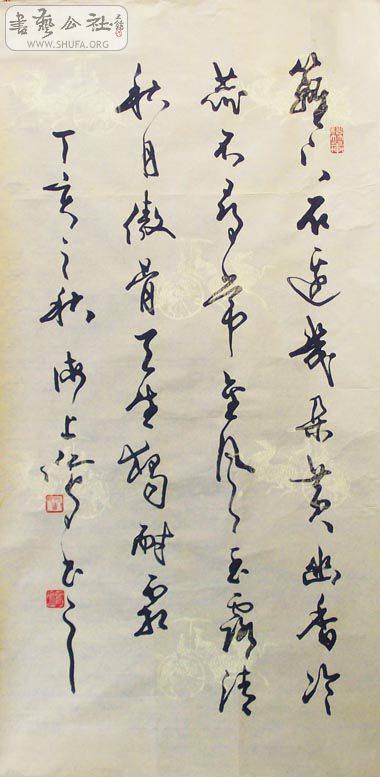 書藝公社
WWW.SHUFA.ORG
籬下石邊幾朵黃幽香冷
蕊不尋常金風玉露清
秋月傲骨天生獨耐霜
丁亥之秋海上書